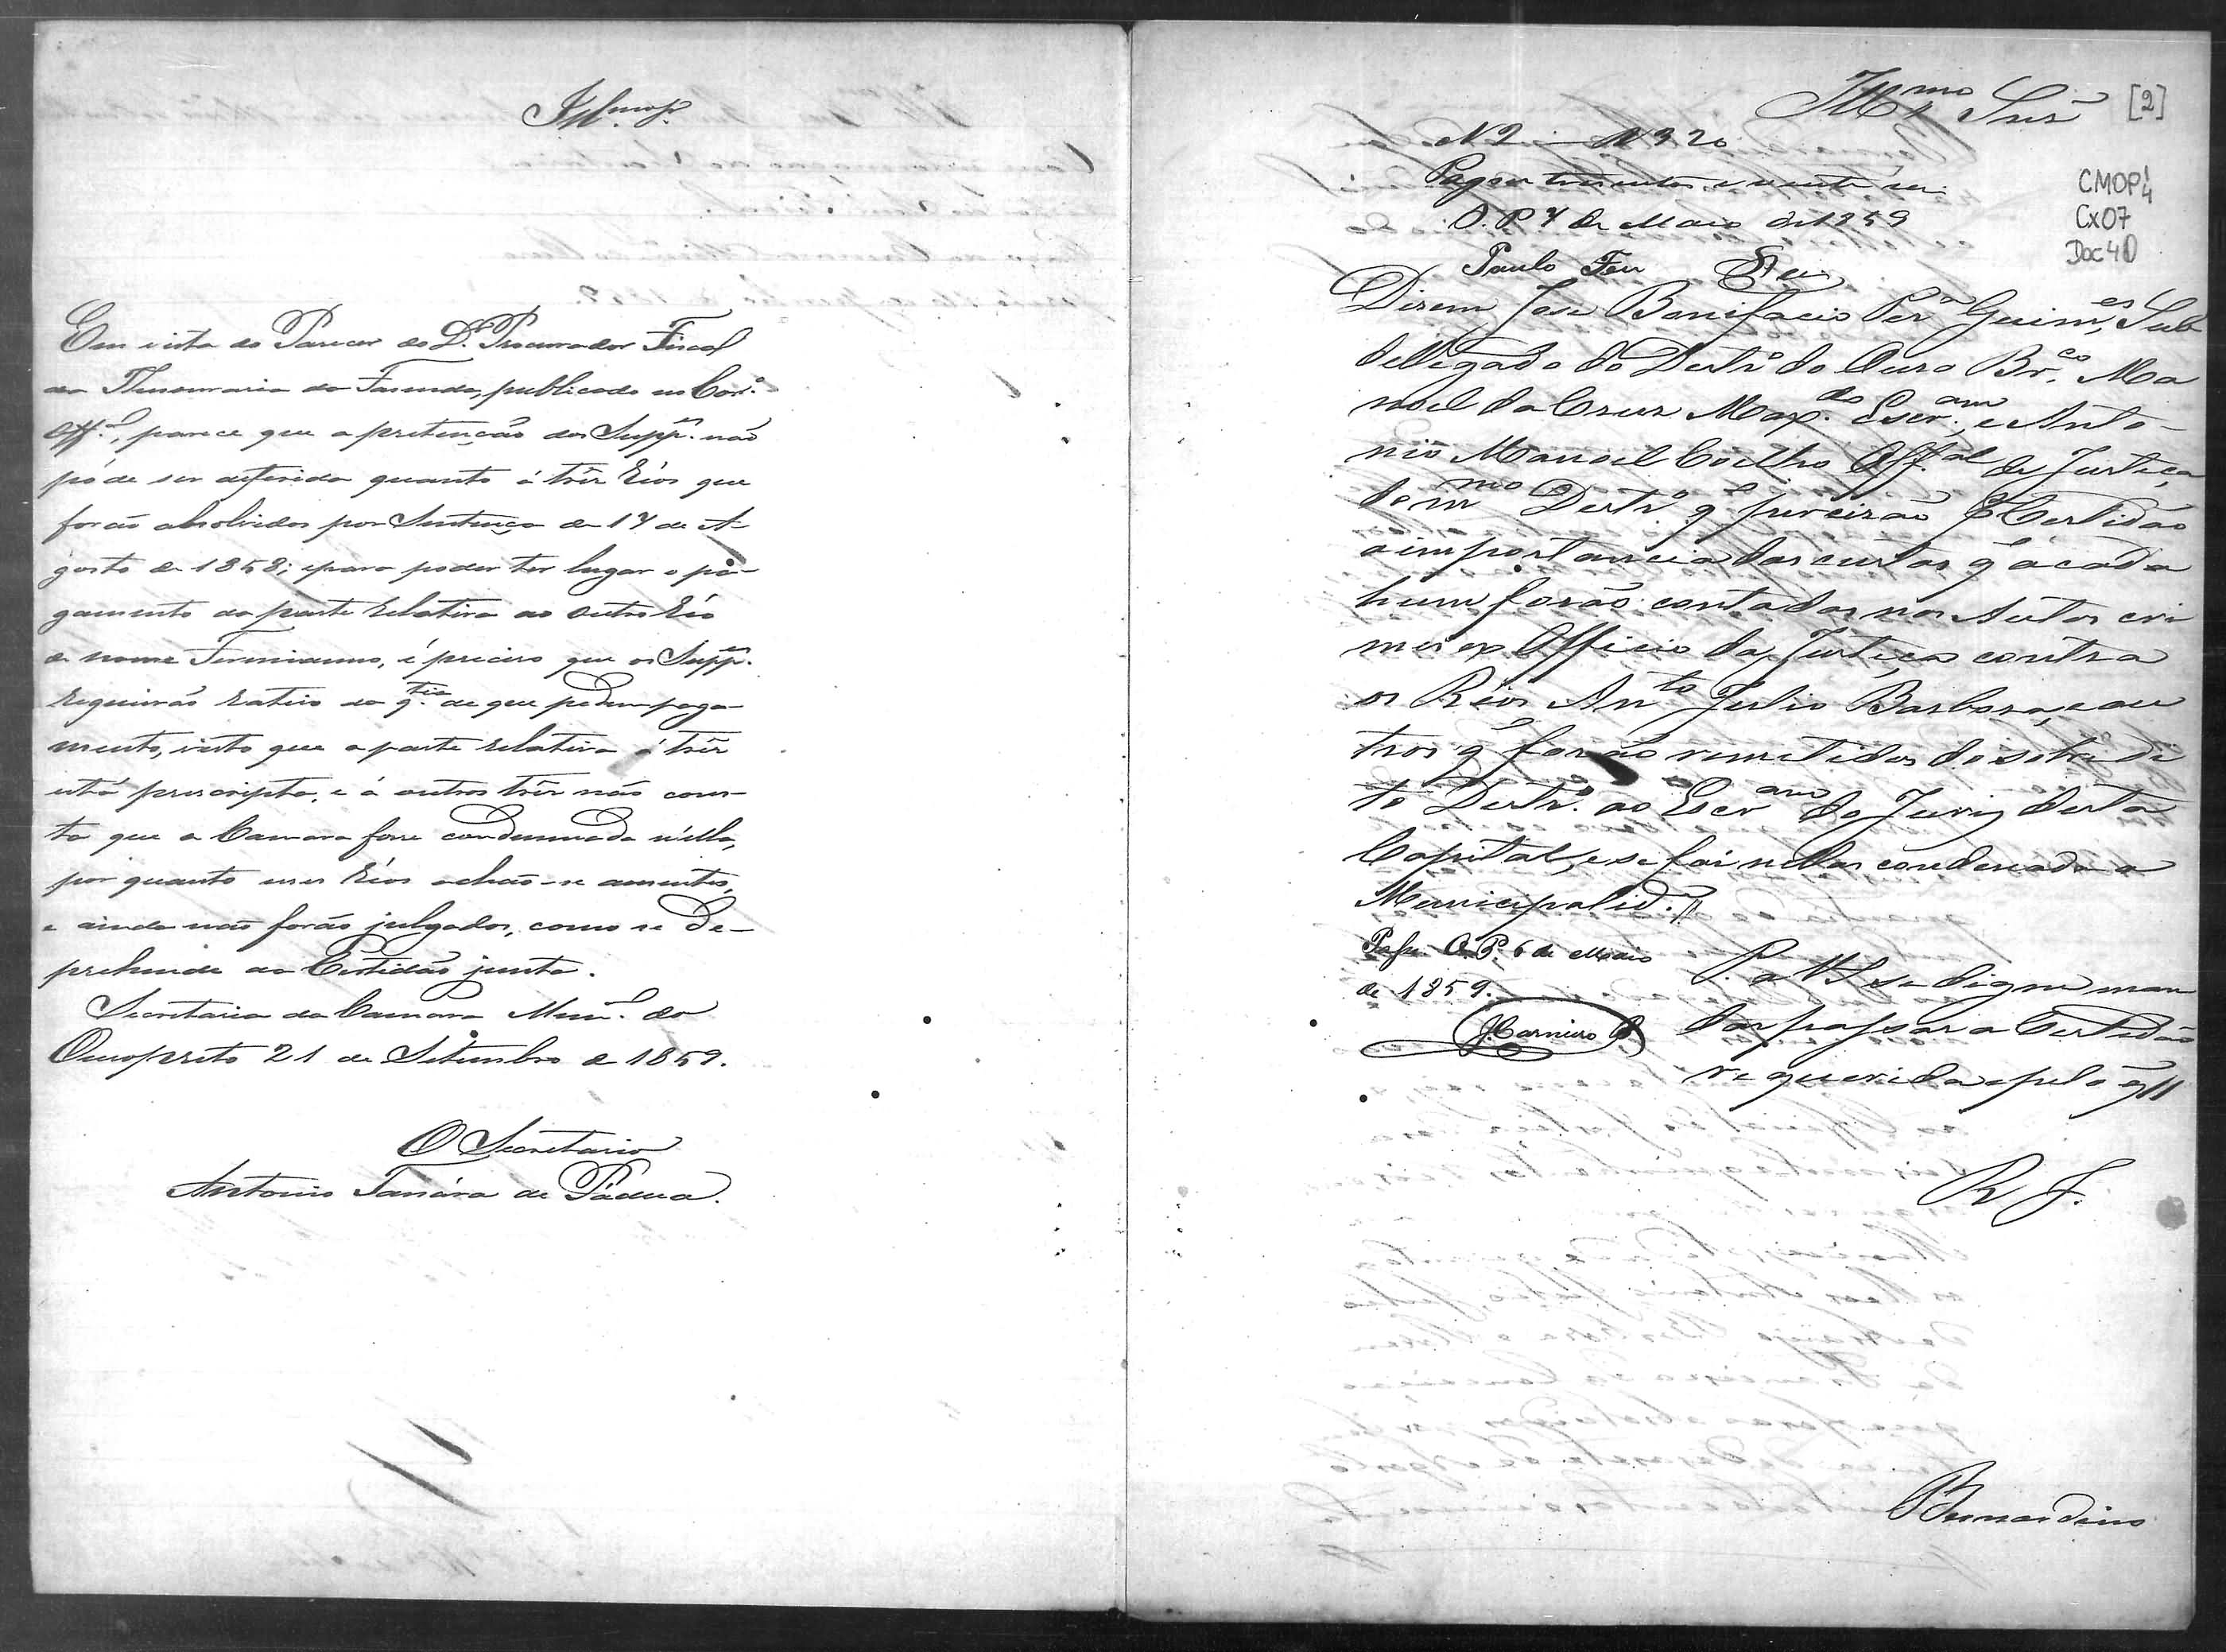 Illmos.
Em vista do Parecer do Dr. Procurador Fiscal
da Thesouraria da Fazenda, publicado no Corro.
Offal., parece que a pretenção dos Suppes. não
póde ser deferida quanto á três Réos que
forão absolvidos por Sentença de 17 de A-
gosto de 1858; e para poder ter lugar o pa-
gamento da parte relativa ao outro Réo
de nome Firmianno, é preciso que os Suppes.
requeirão rateio da qtia. de que pedem paga-
mento, visto que a parte relativa á três
está prescripta, e á outros três não cons-
ta que a Camara fosse condemnada n'ella,
por quanto esses Réos achão-se ausentes,
e ainda não forão julgados, como se de-
prehende da Certidão junta.
Secretaria da Camara Munal. do
Ouropreto 21 de Setembro de 1859.
O Secretario
Antonio de Pádua.
Illmo Snr
[2]
N 2 N 320
Pagou trescentos e vinte reis
O. P 7 de Maio de 1859
Paulo
CMOP
Cx07
Doc 40
Dizem Jose Bonifacio Pera Guimes, Sub
dellegado do Destro do Ouro Brco. Ma
noel da Cruz Maxdo. Escram, e Anto-
nio Manoel Coelho Offal de Justiça
do mmo Destro q' precizão pr Certidão
a importancia das custas q' a cada
hum forão contadas nos Autos cri
mes ex Officio da Justiça contra
os Réos Anto Julio Barbosa, e ou
tros q' forão remetidos do sobredi
to Destro. ao Escram do Jury desta
Capital, e se foi nellas condenada a
Municipalide.//
Passe O. P. 6 de Maio
de 1859.
J. Carneiro
P. a VS se digne man
dar passar a Certidão
requerida e pelo q'//
R J.
Bernardino